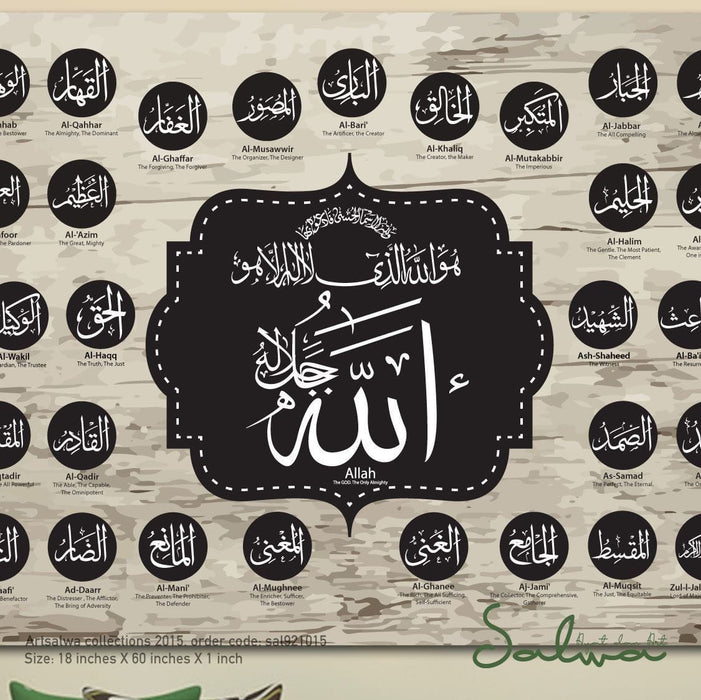 القهار
Al-Qahhar
The Almighty, The Dominant
الغفار
Al-Ghaffar
The Forgiving, The Forgiver
المصور
Al-Musawwir
The Organizer, The Designer
البارئ
Al-Bari'
The Artificer, the Creator
الخالق
Al-Khaliq
The Creator, the Maker
المتكبر
Al-Mutakabbir
The Imperious
الجبار
Al-Jabbar
The All Compelling
العظيم
Al-'Azim
The Great, Mighty
الحليم
Al-Halim
The Gentle. The Most Patient,
The Clement
هو الله الذي لا إله إلا هو
الوكيل
Al-Wakil
The Trustee
الحق
Al-Haqq
The Truth, The Just
الله جل جلاله
Allah
The GOD. The Only Almighty
الشهيد
Ash-Shaheed
The Witness
القادر
Al-Qadir
The Able, The Capable,
The Omnipotent
الصمد
As-Samad
The Perfect, The Eternal,
الضار
Ad-Daarr
The Distresser , The Afflictor,
The Bring of Adversity
المانع
Al-Mani'
The Preventer, The Prohibiter,
The Defender
المغني
Al-Mughnee
The Enricher, Sufficer,
The Bestower
الغني
Al-Ghanee
The Rich, The All Sufficing,
Self-Sufficient
الجامع
Aj-Jami'
The Collector, The Comprehensive,
Gatherer
المقسط
Al-Muqsit
The Just, The Equitable
Artsalwa collections 2015, order code: sal921015
Size: 18 inches X 60 inches X 1 inch
Salwa